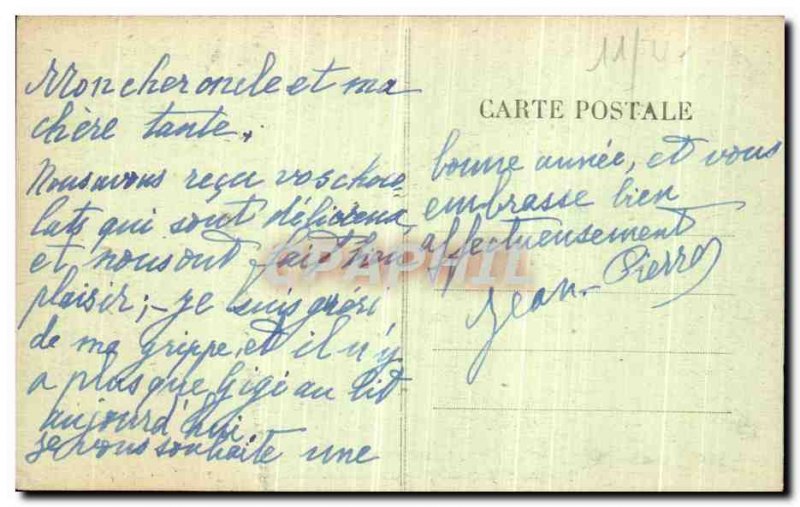 Mon cher oncle et ma
chère tante,
Nous avons reçu vos choco-
lats qui sont délicieux,
et nous ont fait
plaisir; - je suis guéri
de ma grippe, et il n'y
a plus que Gigi au lit
aujourd'hui
je vous souhaite une
11/
CARTE POSTALE
bonne année, et vous
embrasse bien
affectueusement
Jean-Pierre
CPAPHIL